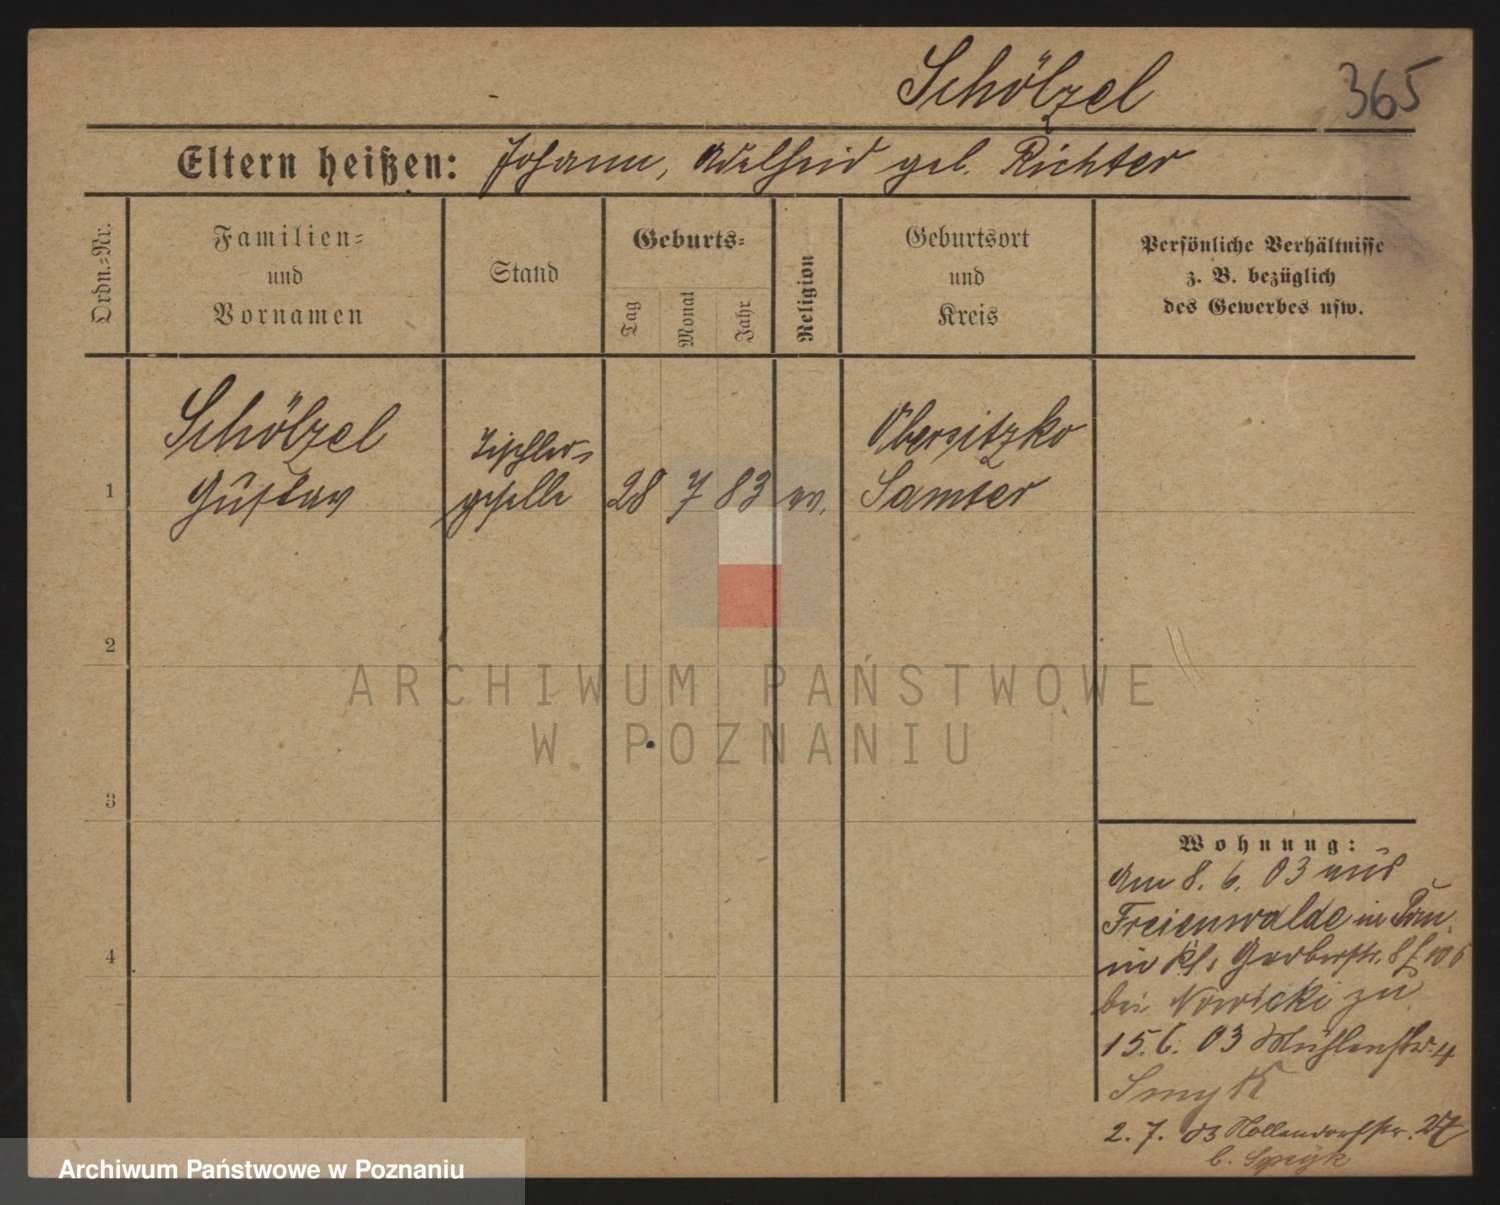 Schölzel
365
Eltern heißen: Johann, Adelheid geb. Richter
Ordn.-Nr.
Familien-
und
Vornamen
Stand
Geburts-
Tag
Monat
Jahr
Religion
Geburtsort
und
Kreis
Persönliche Verhältnisse
z. B. bezüglich
des Gewerbes usw.
1
Schölzel
Gustav
Tischler-
geselle
28 7 83 ev.
Obersitzko
Samter
2
3
4
Wohnung:
Am 8. 6. 03 aus
Freienwalde in Pom.
in Kl. Gerberstr. 8
bei Nowicki zu
15. 6. 03 Mühlenstr. 4
Smyk
2. 7. 03 Hollendorfstr. 27
b. Smyk
ARCHIWUM PAŃSTWOWE
W POZNANIU
Archiwum Państwowe w Poznaniu